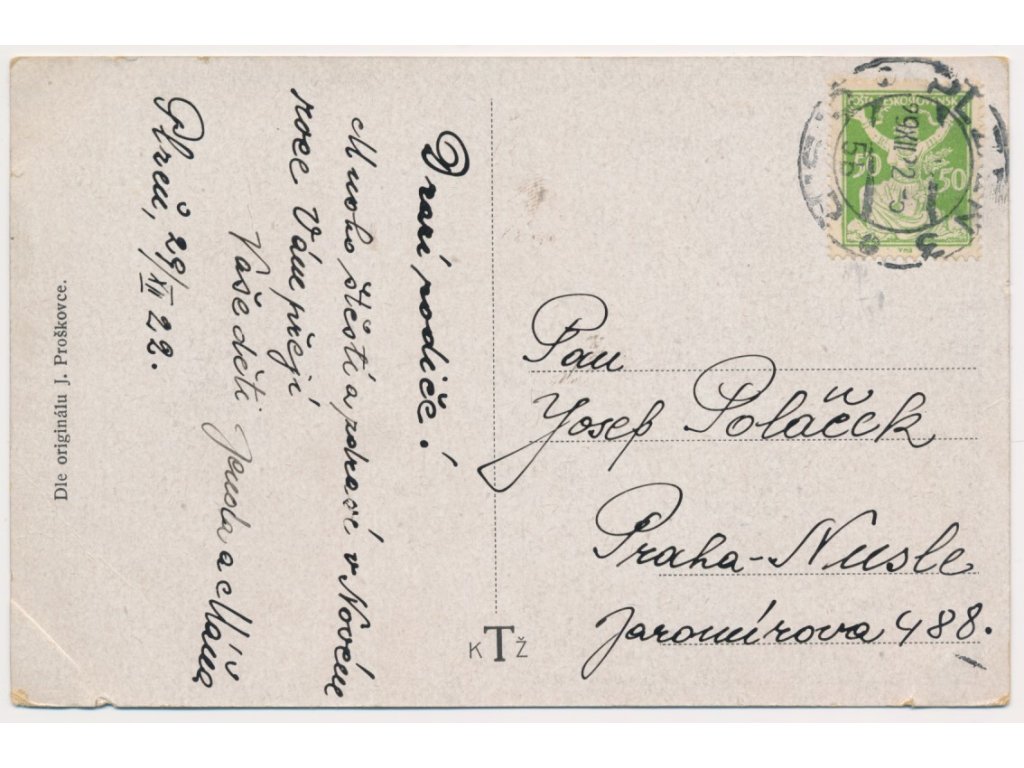 Drazí rodiče!
Mnoho štěstí a zdraví v Novém
roce Vám přejí
Vaše děti Jenda a Máňa
Plzeň, 29/XII 22.
Dle originálu J. Proškovce.
K T Ž
Pan
Josef Poláček
Praha-Nusle
Jaromírova 488.
POŠTA ČESKOSLOVENSKÁ
50 50
PLZEŇ 3
29 XII 22 -5
5b